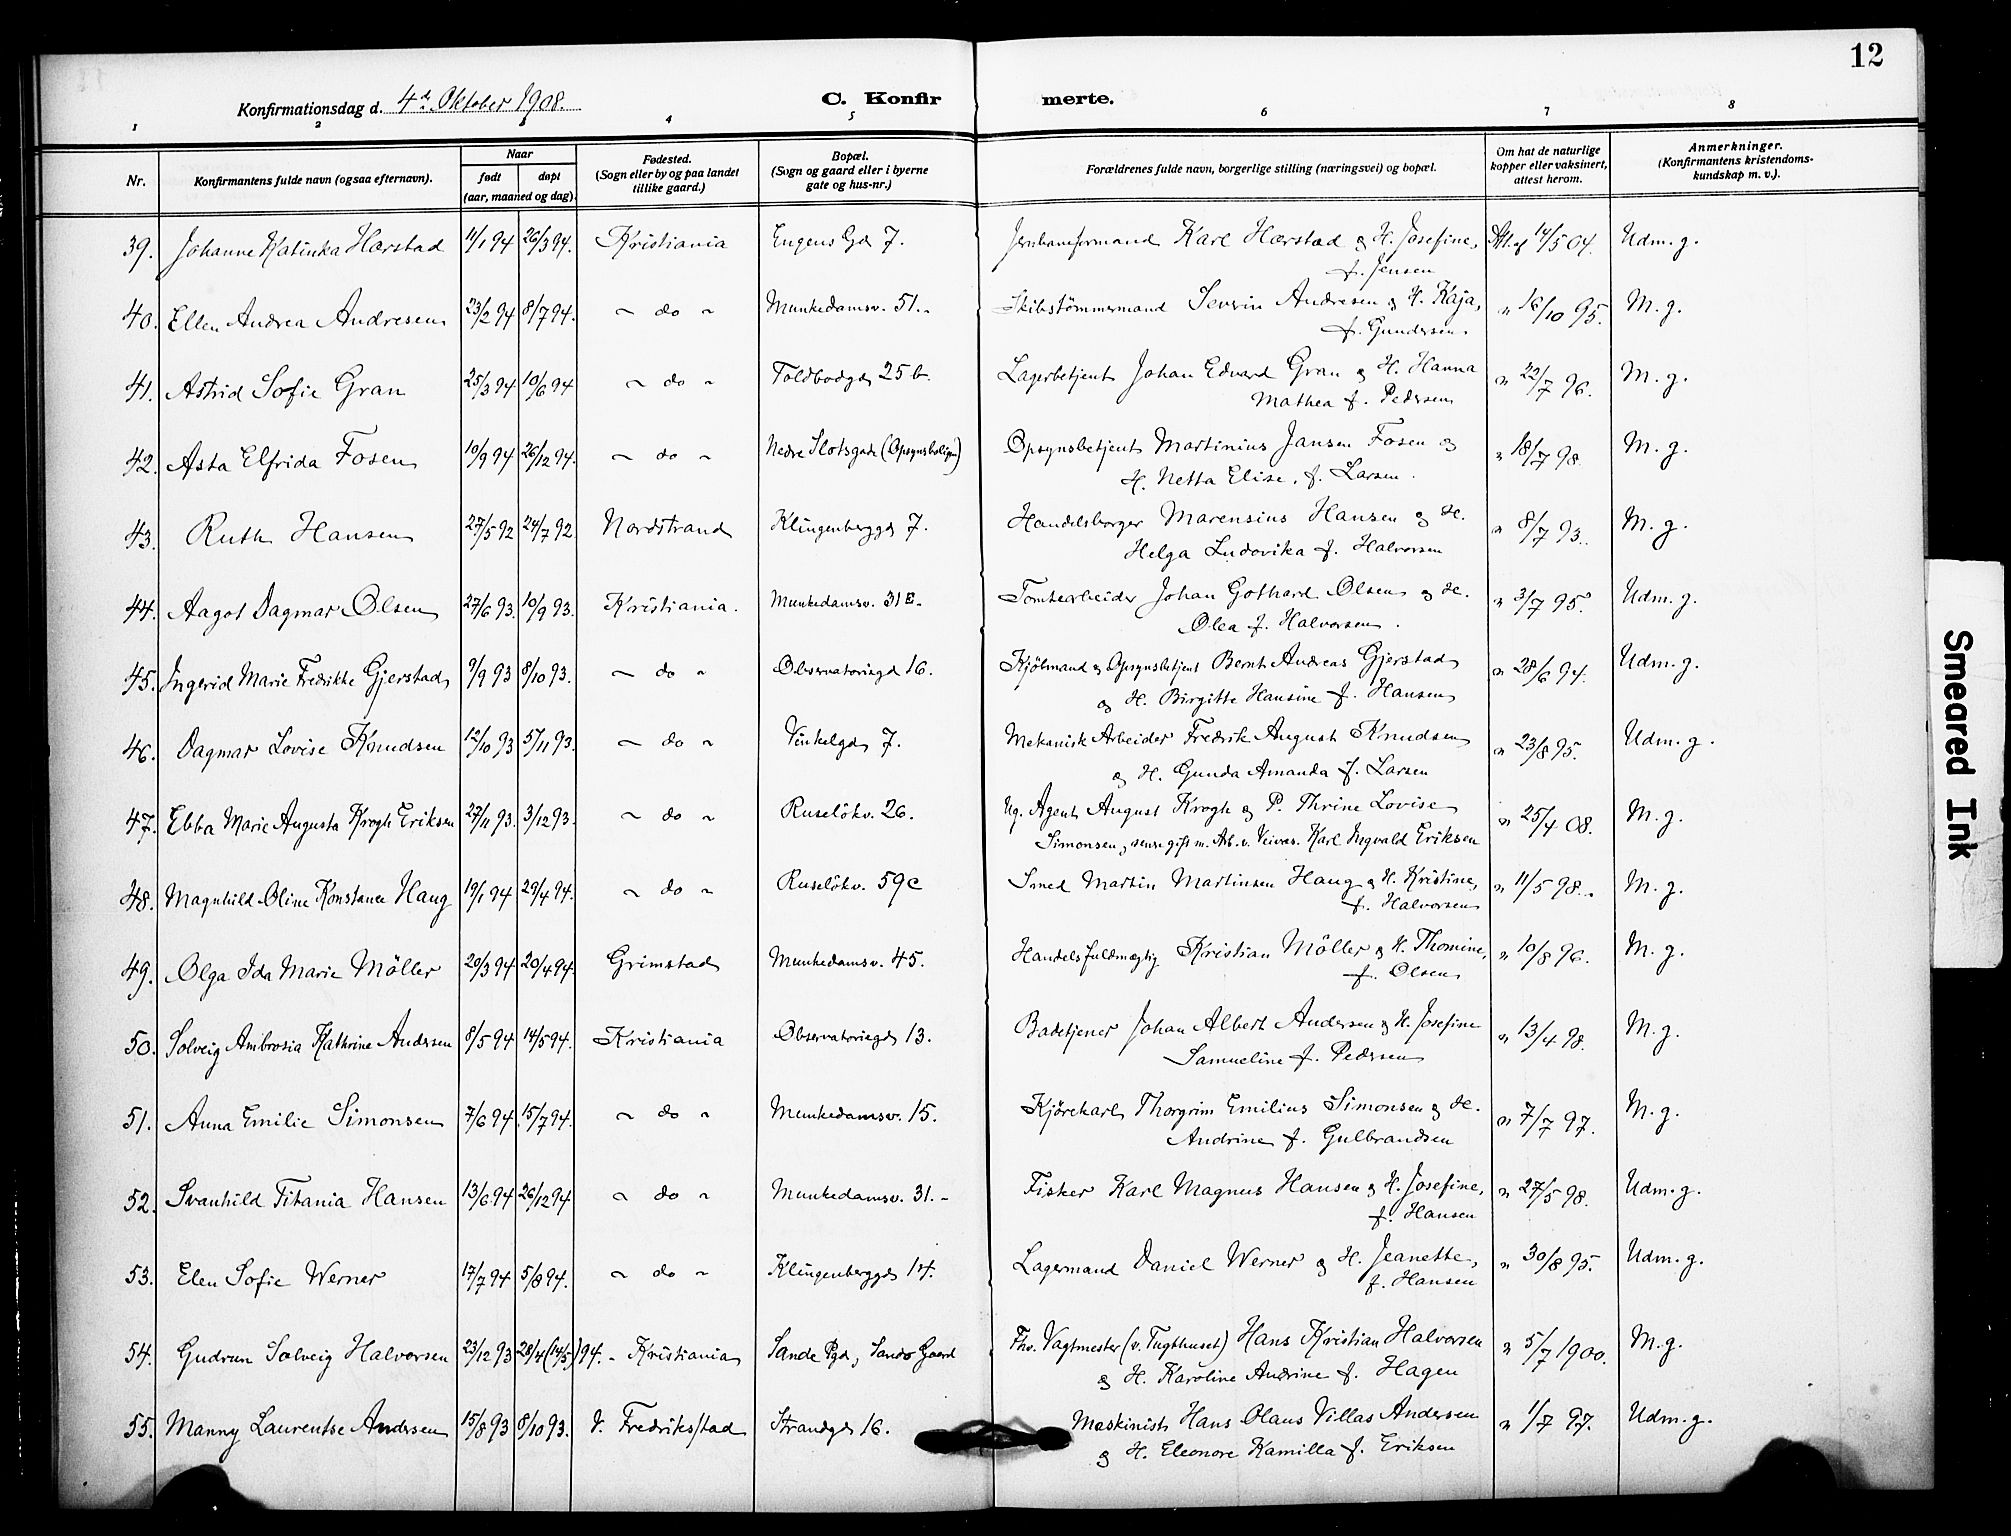 12
Konfirmationsdag d. 4de Oktober 1908.
C. Konfirmerte.
1 2 3 4 5 6 7 8
Nr. Konfirmantens fulde navn (ogsaa efternavn). Naar født døpt (aar, maaned og dag). Fødested. (Sogn eller by og paa landet tillike gaard.) Bopæl. (Sogn og gaard eller i byerne gate og hus-nr.) Forældrenes fulde navn, borgerlige stilling (næringsvei) og bopæl. Om hat de naturlige kopper eller vaksinert, attest herom. Anmerkninger. (Konfirmantens kristendomskundskap m. v.).
39. Johanne Katinka Harstad 11/1 94 26/3 94. Kristiania Eugens Gd 7. Jernbaneformand Karl Harstad & H. Josefine, Att. af 14/5 04. Udm. g.
f. Jensen
40. Ellen Andrea Andresen 23/2 94 8/7 94. ~ do ~ Munkedamsv. 51. Skibstømmermand Severin Andresen & H. Kaja, " 16/10 95. M. g.
f. Gundersen
41. Astrid Sofie Gran 25/3 94 10/6 94 ~ do ~ Toldbodgd 25 b. Lagerbetjent Johan Edvard Gran & H. Hanna " 22/7 96. M. g.
Mathea f. Pedersen
42. Asta Elfrida Fosen 10/9 94 26/12 94. ~ do ~ Nedre Slotsgade (Opsynsboligen) Opsynsbetjent Martinius Jansen Fosen og " 18/7 98. M. g.
H. Netta Elise, f. Larsen.
43. Ruth Hansen 27/5 92 24/7 92. Nordstrand Klingenberggd 7. Handelsborger Marensius Hansen & H. " 8/7 93. M. g.
Helga Ludovika f. Halvorsen
44. Aagot Dagmar Olsen 27/6 93. 10/9 93. Kristiania. Munkedamsv. 31 B. Tomtearbeider Johan Gothard Olsen & H. " 3/7 95. Udm. g.
Olea f. Halvorsen.
45. Ingerid Marie Fredrikke Gjerstad 9/9 93 8/10 93. ~ do ~ Observatoriegd 16. Kjölmand & Opsynsbetjent Bernt Andreas Gjerstad " 28/6 94. Udm. g.
og H. Birgitte Hansine f. Hansen
46. Dagmar Lovise Knudsen 12/10 93 5/11 93. ~ do ~ Vinkelgd 7. Mekanisk Arbeider Fredrik August Knudsen " 23/8 95. Udm. g.
& H. Gunda Amanda f. Larsen
47. Ebba Marie Augusta Krogh Eriksen 27/11 93. 3/12 93. ~ do ~ Ruselökv. 26. Ug. Agent August Krogh & P. Thrine Lovise " 25/4 08. M. g.
Simonsen, senere gift m. Arb. v. Veivæs. Karl Ingvald Eriksen
48. Magnhild Oline Konstance Haug 19/1 94 29/4 94. ~ do ~ Ruselökv. 59 c Smed Martin Martinsen Haug & H. Kristine, " 11/5 98. M. g.
f. Halvorsen
49. Olga Ida Marie Möller 20/3 94 20/4 94. Grimstad Munkedamsv. 45. Handelsfuldmægtig Kristian Möller & H. Thomine, " 10/8 96. M. g.
f. Olsen
50. Solveig Ambrosia Kathrine Andersen 8/5 94 14/5 94. Kristiania Observatoriegd 13. Badetjener Johan Albert Andersen & H. Josefine " 13/4 98. M. g.
Samueline f. Pedersen
51. Anna Emilie Simonsen 7/6 94 15/7 94. ~ do ~ Munkedamsv. 15. Kjörekarl Thorgrim Emilius Simonsen & H. " 7/7 97. M. g.
Andrine f. Gulbrandsen
52. Svanhild Titania Hansen 13/6 94 26/12 94 ~ do ~ Munkedamsv. 31. Fisker Karl Magnus Hansen & H. Josefine, " 27/5 98. Udm. g.
f. Hansen
53. Elen Sofie Werner 17/7 94 5/8 94. ~ do ~ Klingenberggd 14. Lagermand Daniel Werner & H. Jeanette, " 30/8 95. Udm. g.
f. Hansen
54. Gudrun Solveig Halvorsen 23/12 93 28/4 (14/5) 94. - Kristiania Sande Pgd, Sande Gaard Fhv. Vagtmester (v. Tugthuset) Hans Kristian Halvorsen " 5/7 1900. M. g.
& H. Karoline Andrine f. Hagen
55. Manny Laurentse Andersen 15/8 93 8/10 93. V. Fredriksstad Strandgd 16. Maskinist Hans Olaus Villas Andersen " 1/7 97. Udm. g.
& H. Eleonore Kamilla f. Eriksen
Smeared Ink